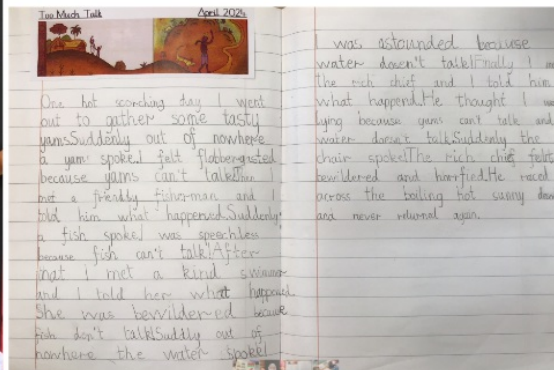 Too Much Talk April 2024
One hot scorching day I went
out to gather some tasty
yams.Suddenly out of nowhere
a yam spoke.I felt flabbergasted
because yams can't talk!Then I
met a friendly fisherman and I
told him what happened.Suddenly
a fish spoke.I was speechless
because fish can't talk!After
that I met a kind swimmer
and I told her what happened
She was bewildered because
fish don't talk!Suddly out of
nowhere the water spoke!
I was astounded because
water doesn't talk!Finally I
the rich chief and I told him
what happend.He thought I
lying because yams can't talk and
water doesn't talk.Suddenly the
chair spoke!The rich chief felt
bewildered and horrified.He raced
across the boiling hot sunny
and never returned again.